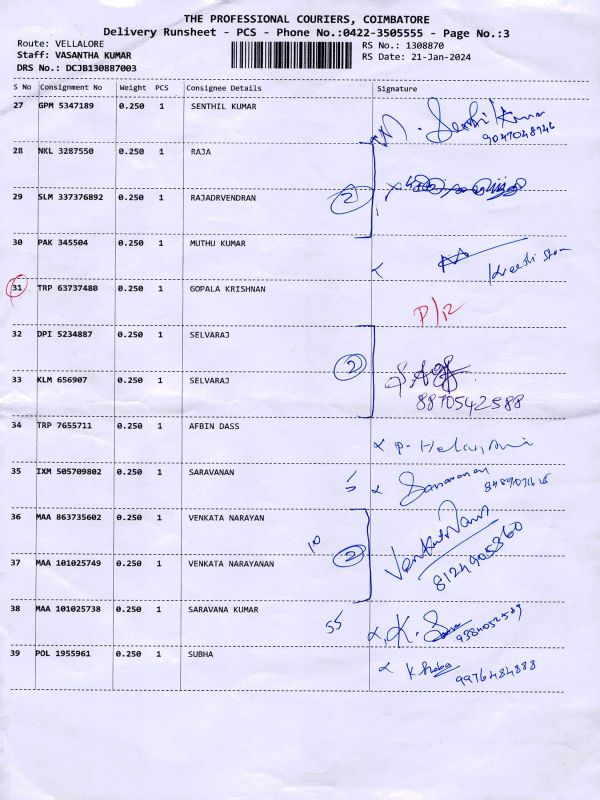 THE PROFESSIONAL COURIERS, COIMBATORE
Delivery Runsheet - PCS - Phone No.:0422-3505555 - Page No.:3
Route: VELLALORE
Staff: VASANTHA KUMAR
DRS No.: DCJB130887003
RS No.: 1308870
RS Date: 21-Jan-2024
S No Consignment No Weight PCS Consignee Details Signature
27 GPM 5347189 0.250 1 SENTHIL KUMAR
M. Senthil Kumar
9047048746
28 NKL 3287550 0.250 1 RAJA
2
29 SLM 337376892 0.250 1 RAJADRVENDRAN
30 PAK 345504 0.250 1 MUTHU KUMAR
31 TRP 63737480 0.250 1 GOPALA KRISHNAN
P/12
32 DPI 5234887 0.250 1 SELVARAJ
2
33 KLM 656907 0.250 1 SELVARAJ
8870542588
34 TRP 7655711 0.250 1 AFBIN DASS
P. Helan
35 IXM 505709802 0.250 1 SARAVANAN
Saravanan
36 MAA 863735602 0.250 1 VENKATA NARAYAN
10
2
37 MAA 101025749 0.250 1 VENKATA NARAYANAN
8124905360
38 MAA 101025738 0.250 1 SARAVANA KUMAR
55 K.
9384052589
39 POL 1955961 0.250 1 SUBHA
K.
9976484888